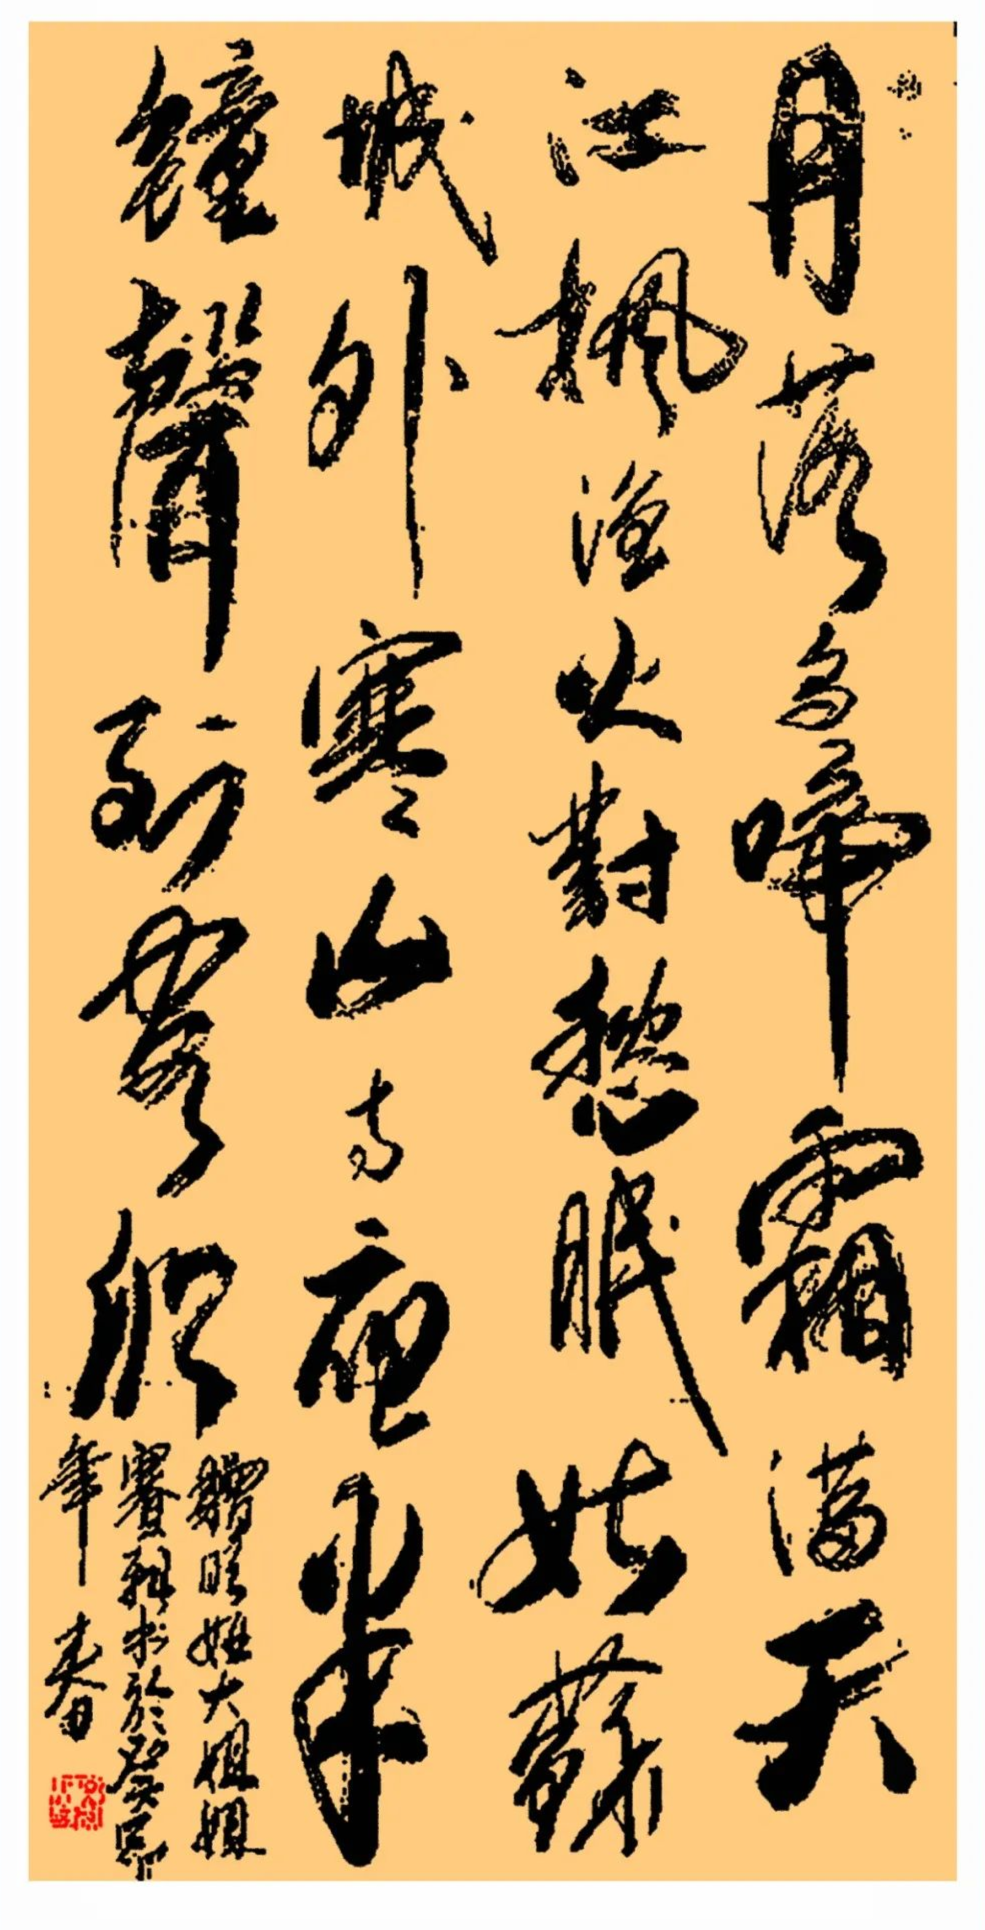 月落烏啼霜滿天
江楓漁火對愁眠姑蘇
城外寒山寺夜半
鐘聲到客船
贈大姐姐
书於癸卯
年春